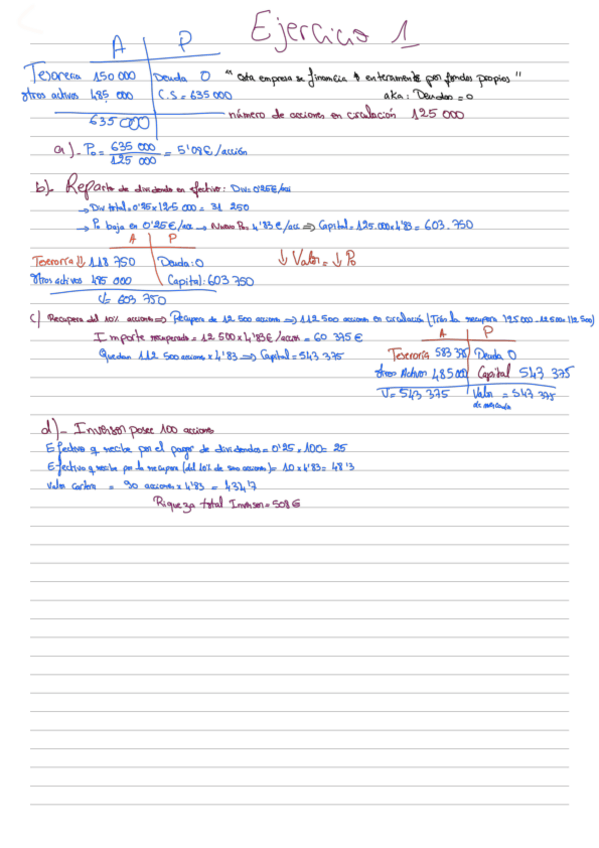 Ejercicio 1
A P
Tesorería 150 000 Deuda 0 "esta empresa se financia enteramente por fondos propios"
otros activos 485 000 C.S = 635 000 aka: Deudas = 0
635 000 número de acciones en circulación 125 000
a)- P₀ = 635 000 / 125 000 = 5'08€/acción
b)- Reparto de dividendo en efectivo: Div = 0'25€/acc
→ Div total = 0'25 x 125 000 = 31 250
→ P₀ baja en 0'25€/acc → Nuevo P₀ = 4'83 €/acc ⇒ Capital = 125.000 x 4'83 = 603.750
A P
Tesorería ↓ 118 750 Deuda: 0 ↓ Valor = ↓ P₀
otros activos 485 000 Capital: 603 750
V = 603 750
c) Recupera del 10% acciones ⇒ Recupera de 12 500 acciones ⇒ 112 500 acciones en circulación (Tras la recupera 125 000 - 12 500 = 112 500)
Importe recuperado = 12 500 x 4'83€/accion = 60 375 €
Quedan 112 500 acciones x 4'83 ⇒ Capital = 543 375
A P
Tesorería 583 375 Deuda 0
otros Activos 485 000 Capital 543 375
V = 543 375 Valor de mercado = 543 375
d)- Inversor posee 100 acciones
Efectivo q recibe por el pago de dividendos = 0'25 x 100 = 25
Efectivo q recibe por la recupera (del 10% de sus acciones) = 10 x 4'83 = 48'3
Valor cartera = 90 acciones x 4'83 = 434'7
Riqueza total Inversor = 508€